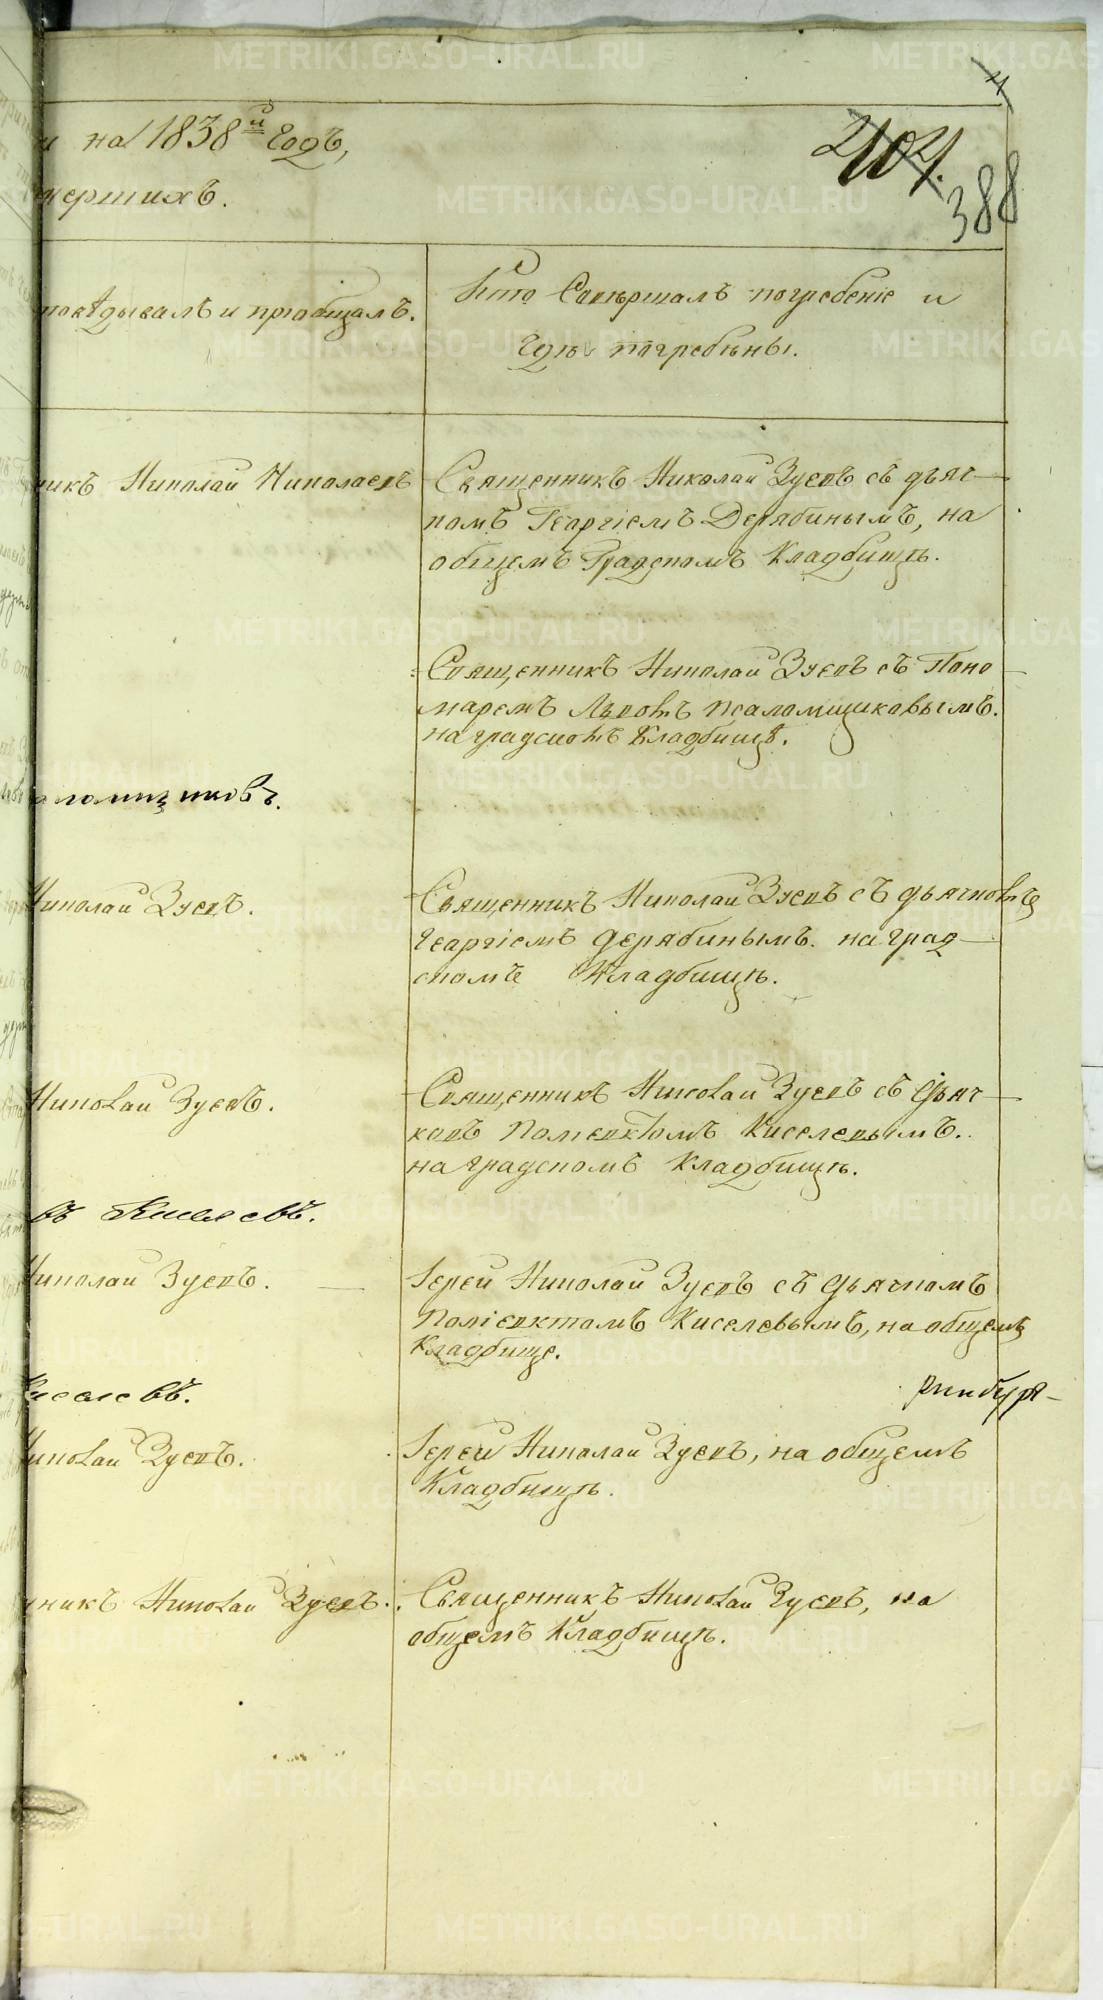 и на 1838й Годъ,
мершихъ.
404.
388
повѣдывалъ и прiобщалъ.
Кто Совершалъ погребенiе и
гдѣ погребѣны.
никъ Николай Николаевъ
Священникъ Николай Зуевъ съ дьяч-
комъ Георгiемъ Дерябинымъ, на
общемъ Градскомъ Кладбищѣ.
Священникъ Николай Зуевъ съ Поно
маремъ Львомъ Псаломщиковымъ.
на градскомъ Кладбищѣ.
аломщиковъ.
Николай Зуевъ.
Священникъ Николай Зуевъ съ дьячкомъ
Георгiемъ Дерябинымъ. на град-
скомъ Кладбищѣ.
Николай Зуевъ.
Священникъ Николай Зуевъ съ Дьяч-
комъ Полiевктомъ Киселевымъ.
на градскомъ Кладбищѣ.
въ Киселевъ.
Николай Зуевъ.
Iерей Николай Зуевъ съ Дьячкомъ
Полiевктомъ Киселевымъ, на общемъ
Кладбище.
Киселевъ.
Николай Зуевъ.
Iерей Николай Зуевъ, на общемъ
Кладбищѣ.
нникъ Николай Зуевъ.
Священникъ Николай Зуевъ, на
общемъ Кладбищѣ.
METRIKI.GASO-URAL.RU